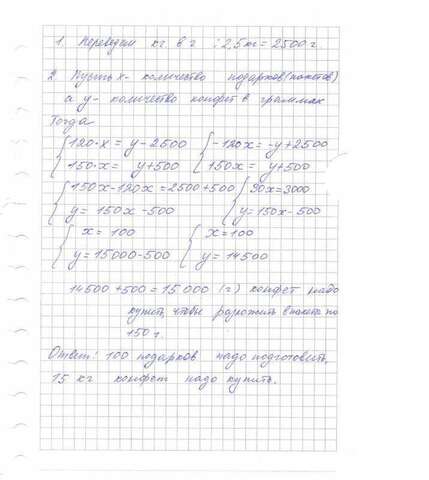 1. Переведем кг в г : 2,5 кг = 2500 г
2. Пусть х - количество подарков (пакетов)
а у - количество конфет в граммах
Тогда
{120·х = у - 2500 {-120х = -у + 2500
{150·х = у + 500 {150х = у + 500
{150х - 120х = 2500 + 500 {30х = 3000
{у = 150х - 500 {у = 150х - 500
{х = 100 {х = 100
{у = 15000 - 500 {у = 14500
14500 + 500 = 15 000 (г) конфет надо
купить, чтобы разложить в пакеты по
150 г.
Ответ: 100 подарков надо подготовить,
15 кг конфет надо купить.